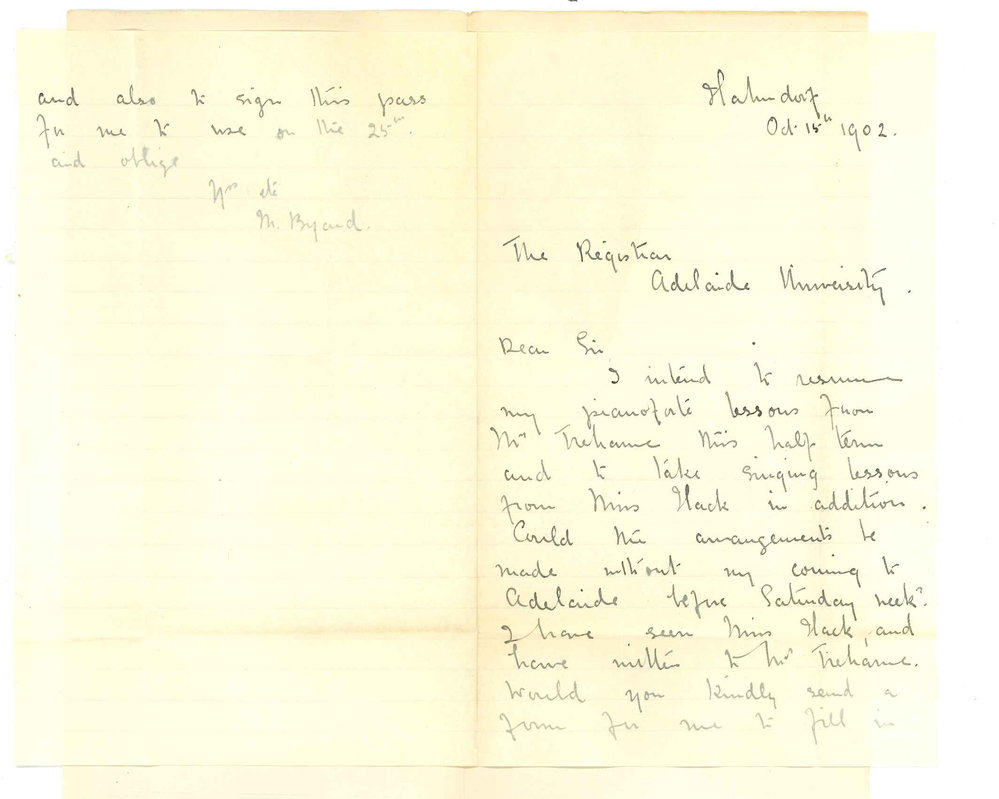 Hahndorf
Oct 15th 1902.
The Registrar
Adelaide University.
Dear Sir,
I intend to resume
my pianoforte lessons from
Mr Trehame this half term
and to take singing lessons
from Miss Hack in addition.
Could the arrangements be
made without my coming to
Adelaide before Saturday week?
I have seen Miss Hack, and
have written to Mr Trehame.
Would you kindly send a
form for me to fill in
and also to sign this pass
for me to use on the 25th.
and oblige
Yrs etc
M. Byard.